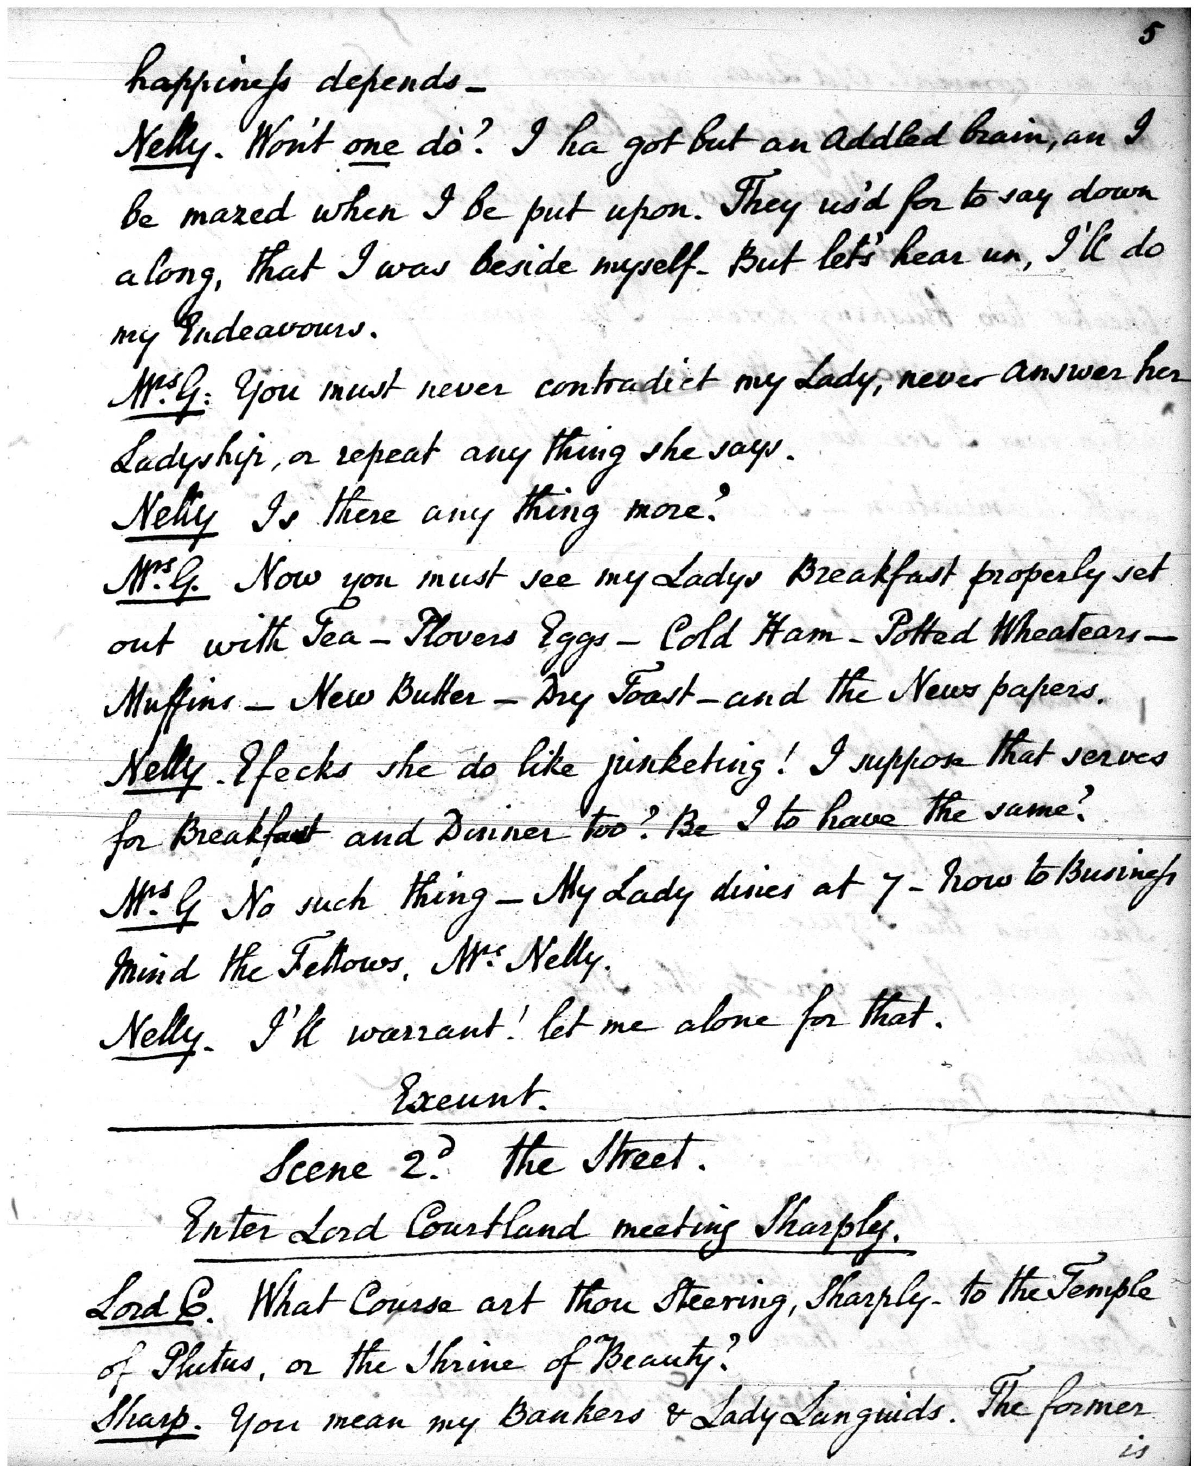 5
happineſs depends_
Nelly. Won't one do? I ha got but an addled brain, an I
be mazed when I be put upon. They us'd for to say down
along, that I was beside myself. But let's hear un, I'll do
my Endeavours.
Mrs G: You must never contradict my Lady, never answer her
Ladyship, or repeat any thing she says.
Nelly Is there any thing more?
Mrs G. Now you must see my Ladys Breakfast properly set
out with Tea – Plovers Eggs – Cold Ham – Potted Wheatears –
Muffins – New Butter – Dry Toast – and the News papers.
Nelly. Efecks she do like junketing! I suppose that serves
for Breakfast and Dinner too? Be I to have the same?
Mrs G No such thing – My Lady dines at 7 – Now to Busineſs
Mind the Fellows, Mrs Nelly.
Nelly. I'll warrant! let me alone for that.
Exeunt.
Scene 2d. the Street.
Enter Lord Courtland meeting Sharply.
Lord C. What Course art thou Steering, Sharply – to the Temple
of Plutus, or the Shrine of Beauty?
Sharp. You mean my Bankers & Lady Languids. The former
is